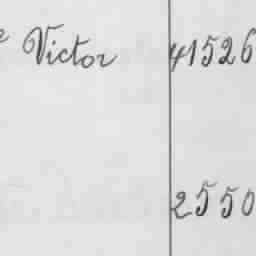 Victor 41526
2550